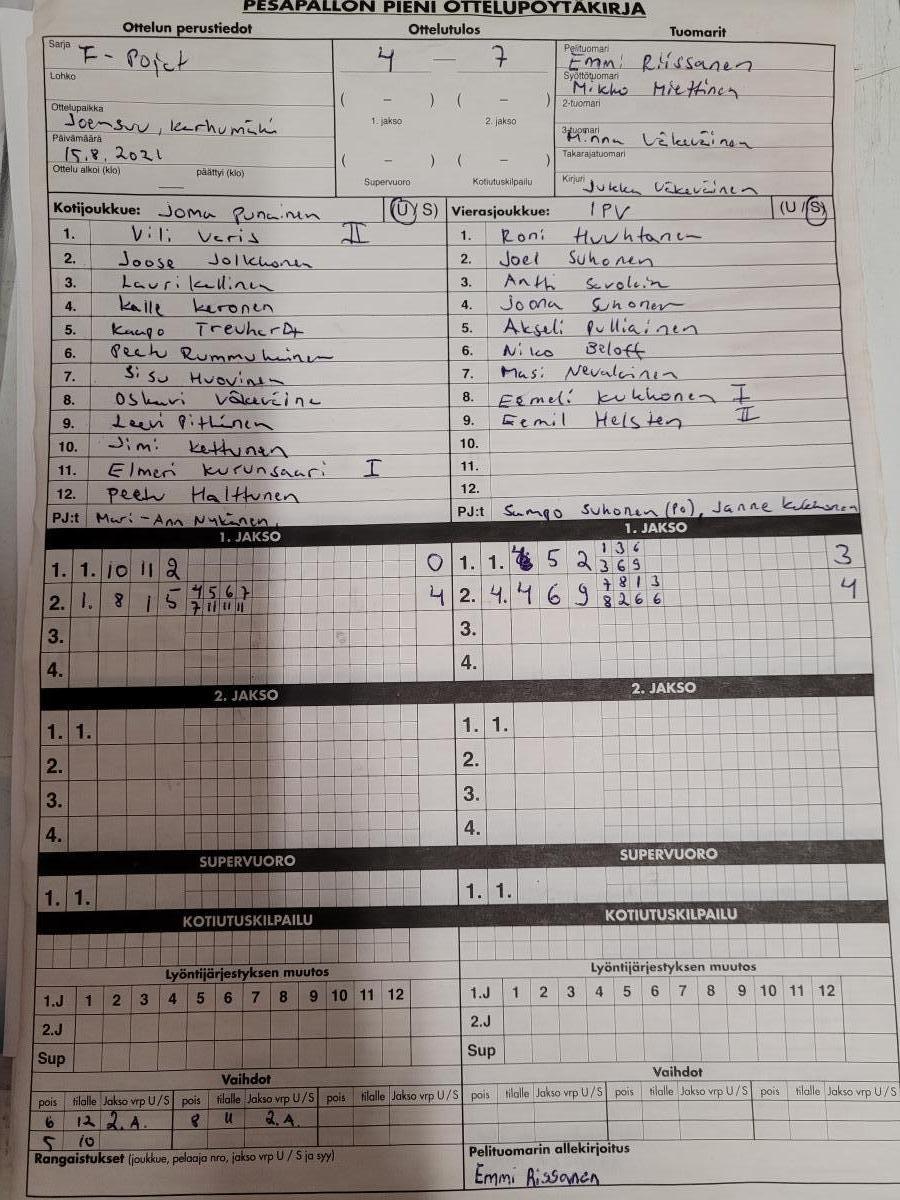 PESÄPALLON PIENI OTTELUPÖYTÄKIRJA
Ottelun perustiedot Ottelutulos Tuomarit
Sarja F - Pojat
4 — 7
Pelituomari Emmi Riissanen
Lohko
Syöttötuomari Mikko Miettinen
( – ) ( – )
2-tuomari
Ottelupaikka Joensuu, Karhumäki
1. jakso 2. jakso
3-tuomari Minna Väkeväinen
Päivämäärä 15.8.2021
( – ) ( – )
Takarajatuomari
Ottelu alkoi (klo) — päättyi (klo)
Supervuoro Kotiutuskilpailu
Kirjuri Jukka Väkeväinen
Kotijoukkue: Joma Punainen (U/S) Vierasjoukkue: IPV (U/S)
1. Vili Varis II 1. Roni Huuhtanen
2. Joose Jolkkonen 2. Joel Suhonen
3. Lauri 3. Antti
4. Kalle Keronen 4. Joona Suhonen
5. Kaapo 5. Akseli Pulliainen
6. Peetu Rummukainen 6. Niko Beloff
7. Sisu Huovinen 7. Masi Nevalainen
8. Oskari Väkeväine 8. Eemeli Kukkonen I
9. Leevi Pitkänen 9. Eemil Helsten II
10. Jimi Kettunen 10.
11. Elmeri Kurunsaari I 11.
12. Peetu Halttunen 12.
PJ:t Mari-Ann Nykänen, PJ:t Sampo Suhonen (PO), Janne Kukkonen
1. JAKSO 1. JAKSO
1. 1. 10 11 2 0 1. 1. 5 2 1 3 6 3
3 6 9
2. 1. 8 1 5 4 5 6 7 4 2. 4. 4 6 9 7 8 1 3 4
7 11 11 11 8 2 6 6
3. 3.
4. 4.
2. JAKSO 2. JAKSO
1. 1. 1. 1.
2. 2.
3. 3.
4. 4.
SUPERVUORO SUPERVUORO
1. 1. 1. 1.
KOTIUTUSKILPAILU KOTIUTUSKILPAILU
Lyöntijärjestyksen muutos Lyöntijärjestyksen muutos
1.J 1 2 3 4 5 6 7 8 9 10 11 12 1.J 1 2 3 4 5 6 7 8 9 10 11 12
2.J 2.J
Sup Sup
Vaihdot Vaihdot
pois tilalle Jakso vrp U/S pois tilalle Jakso vrp U/S pois tilalle Jakso vrp U/S pois tilalle Jakso vrp U/S pois tilalle Jakso vrp U/S pois tilalle Jakso vrp U/S
6 12 2.A. 8 11 2.A.
5 10
Rangaistukset (joukkue, pelaaja nro, jakso vrp U / S ja syy) Pelituomarin allekirjoitus
Emmi Rissanen